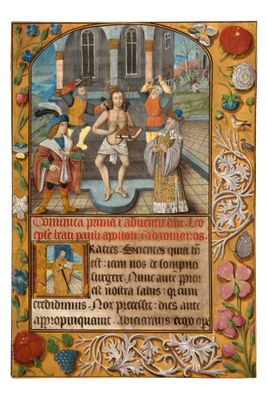 Dominica prima in adventu dni. Lec
epłe beati pauli apostoli ad romanos.
Fratres. Scientes quia ho
est: iam nos de sompno
surgere. Nunc aute propi
est nostra salus: qz cum
credidimus. Nox precessit: dies aute
appropinquavit. Abiciamus ergo ope